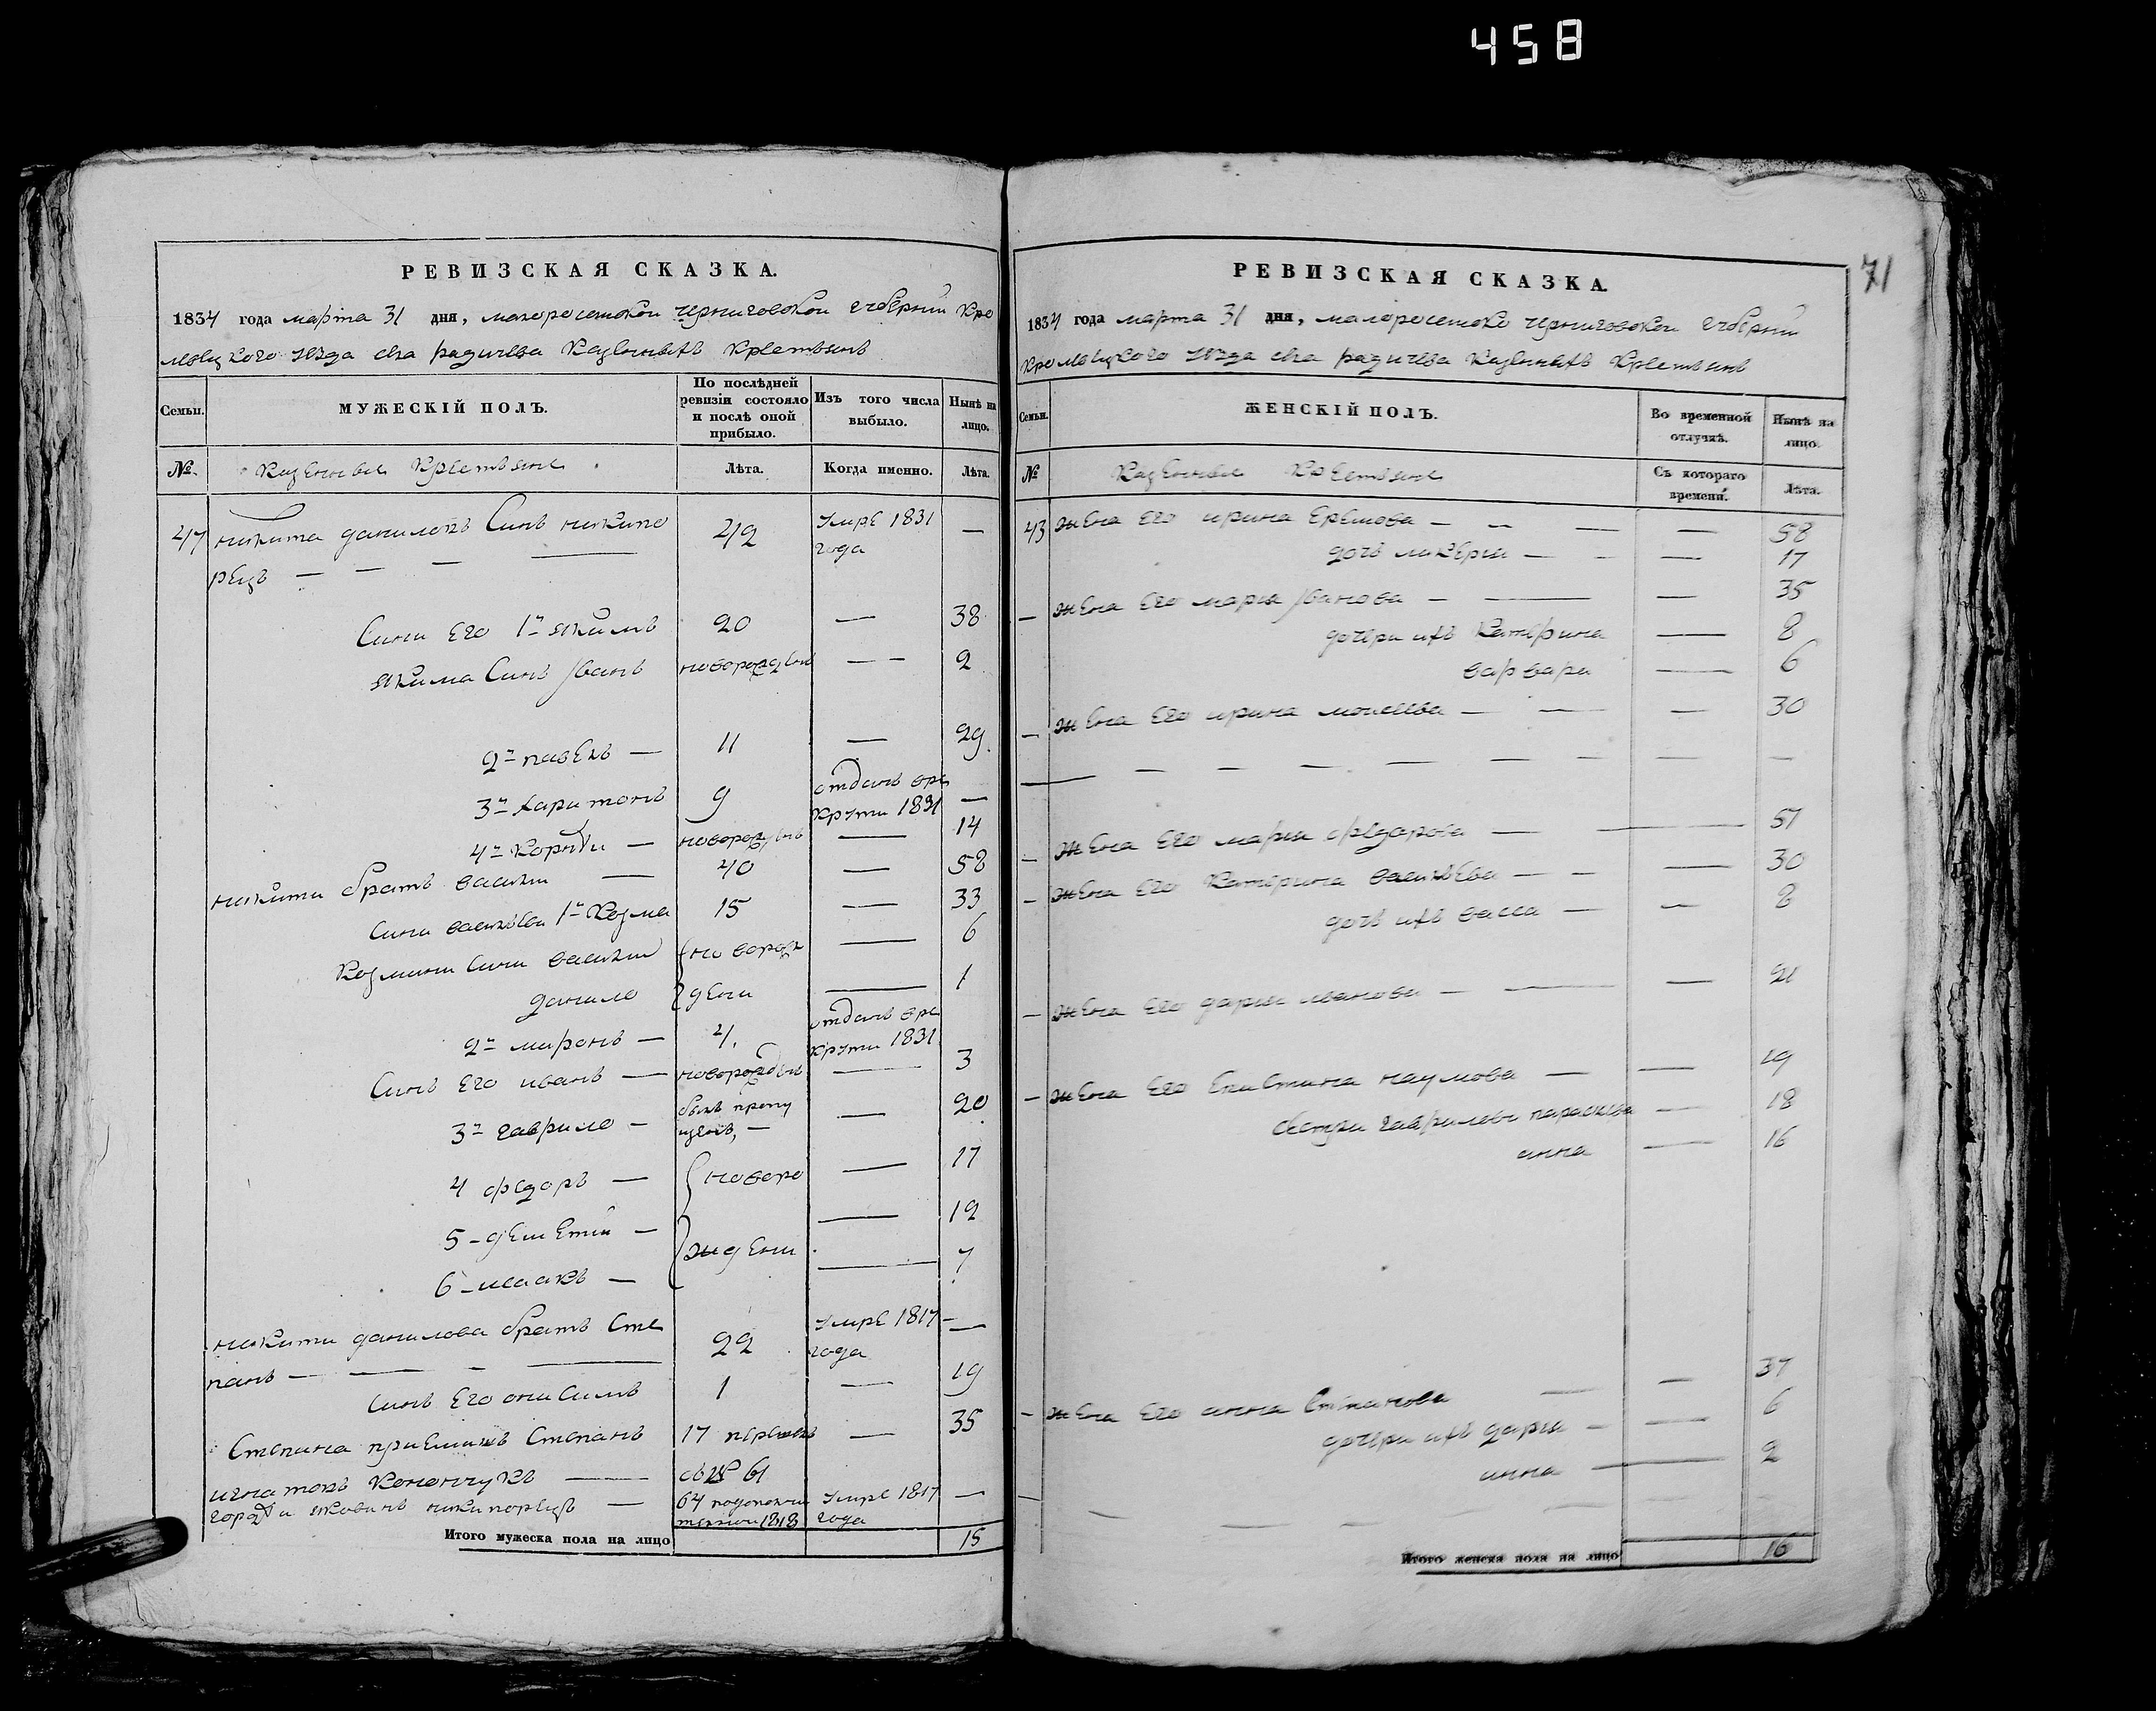 458
РЕВИЗСКАЯ СКАЗКА.
1834 года марта 31 дня, малоросспской черниговской губернии Кро
левецкого уезда села радичева Казенныхъ Крестьянъ
Семьи.
МУЖЕСКІЙ ПОЛЪ.
По послѣдней ревизіи состояло и послѣ оной прибыло.
Изъ того числа выбыло.
Нынѣ на лицо.
№.
Казенные Крестьяне
Лѣта.
Когда именно.
Лѣта.
47 никита даниловъ Синъ никипо 42 умре 1831 —
рецъ — — — года
Сини его 1й якимъ 20 — 38
якима Синъ Іванъ новорожденъ — — 2
2й павелъ — 11 — 29
3й харитонъ 9 отданъ вре —
крути 1831
4й Корнѣи — новорожденъ — 14
никити братъ василии — 40 — 58
Сини василиеви 1й Козма 15 — 33
Козмини Сини василии новорож — 6
данило дени — 1
2й миронъ — 4. отданъ вре
крути 1831
Синъ его иванъ — новорожденъ — 3
3й гаврило — билъ пропу — 20
щенъ, —
4 федоръ — новоро — 17
5 — дементий — — 12
ждени
6 — исаакъ — — 7
никити данилова братъ Сте 22 умре 1817 —
панъ — — — года
Синъ его онисимъ 1 — 19
Степана приемишъ Степанъ 17 — 35
игнатовъ Конончукъ — съ № 61
гордѣи яковивъ никипорецъ — 64 умре 1817 —
1818 года
Итого мужеска пола на лицо 15
71
РЕВИЗСКАЯ СКАЗКА.
1834 года марта 31 дня, малоросспско черниговской губернии
Кролевецкого уезда села радичева Казенныхъ Крестьянъ
Семьи.
ЖЕНСКІЙ ПОЛЪ.
Во временной отлучкѣ.
Нынѣ на лицо.
№
Казенные Крестьяне
Съ котораго времени.
Лѣта.
43 жена его ирина — — — — 58
дочь ликерия — — — 17
— жена его мария Іванова — — — 35
дочери ихъ Катерина — 8
варвара — 6
— жена его ирина моисеева — — — 30
— — — — — — — — — —
— жена его мария федорова — — 51
— жена его Катерина василѣева — — — 30
дочь ихъ васса — — 8
— жена его дария иванова — — — 21
— жена его Наумова — — 19
Сестри гаврилови параскева — 18
анна — 16
— жена его анна Степанова — — 37
дочери ихъ дария — — 6
анна — 2
— — — — —
Итого женска пола на лицо 16